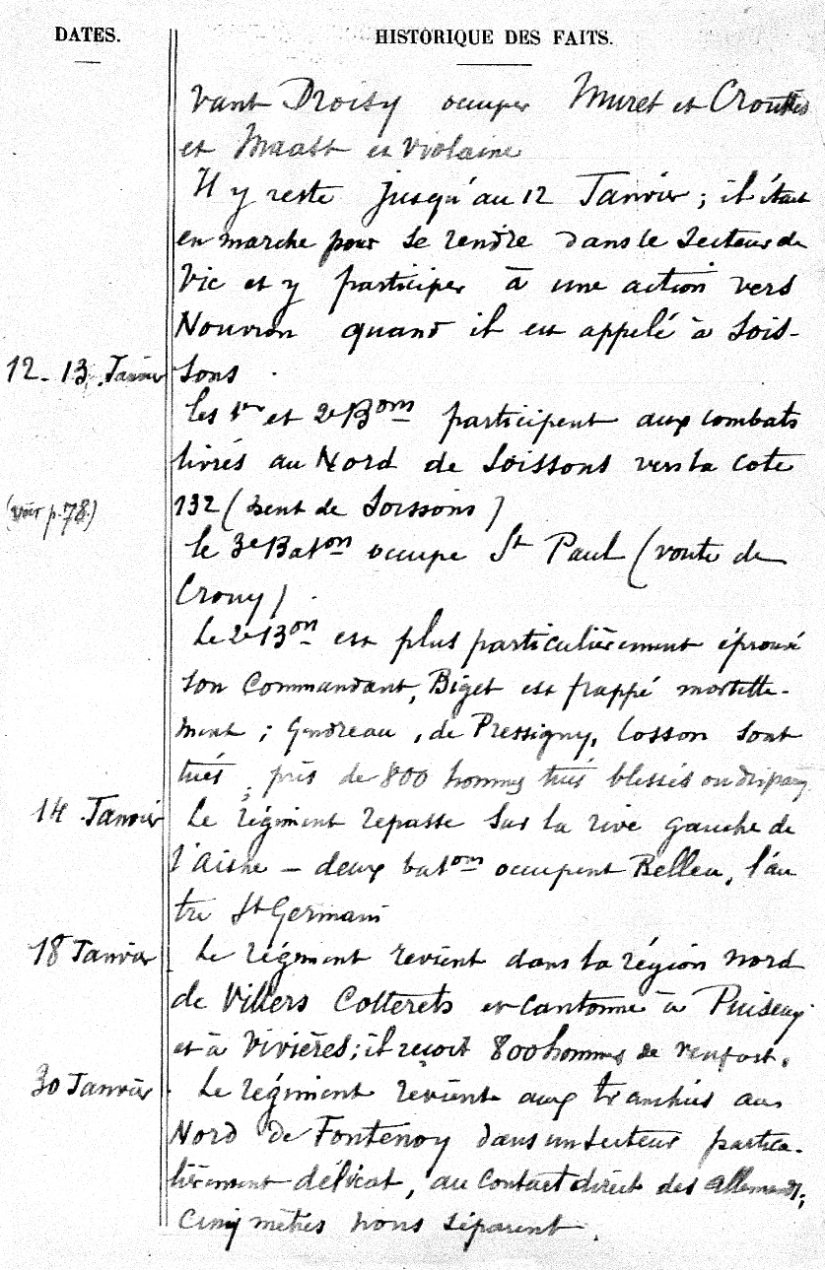 DATES. HISTORIQUE DES FAITS.
vant Droisy occuper Muret et Crouttes
et Maast et Violaine
Il y reste jusqu'au 12 Janvier ; il était
en marche pour se rendre dans le secteur de
Vic et y participer à une action vers
Nouvron quand il est appelé à Sois-
12-13. Janvier sons.
Les 1er et 2e Bons participent aux combats
livrés au Nord de Soissons vers la cote
(voir p.78) 132 (dent de Soissons)
Le 3e Baton occupe St Paul (route de
Crouy).
Le 2e Bon est plus particulièrement éprouvé
son Commandant, Biget est frappé mortelle-
ment ; Gendreau, de Pressigny, Cosson sont
tués ; près de 800 hommes tués blessés ou disparus
14 Janvier Le régiment repasse sur la rive gauche de
l'Aisne - deux batons occupent Belleu, l'au
tre St Germain
18 Janvier Le régiment revient dans la région nord
de Villers Cotterets et cantonne à Puiseux
et à Vivières ; il reçoit 800 hommes de renfort.
30 Janvier Le régiment revient aux tranchées au
Nord de Fontenoy dans un secteur particu-
lièrement délicat, au contact direct des allemands ;
Cinq mètres nous séparent.